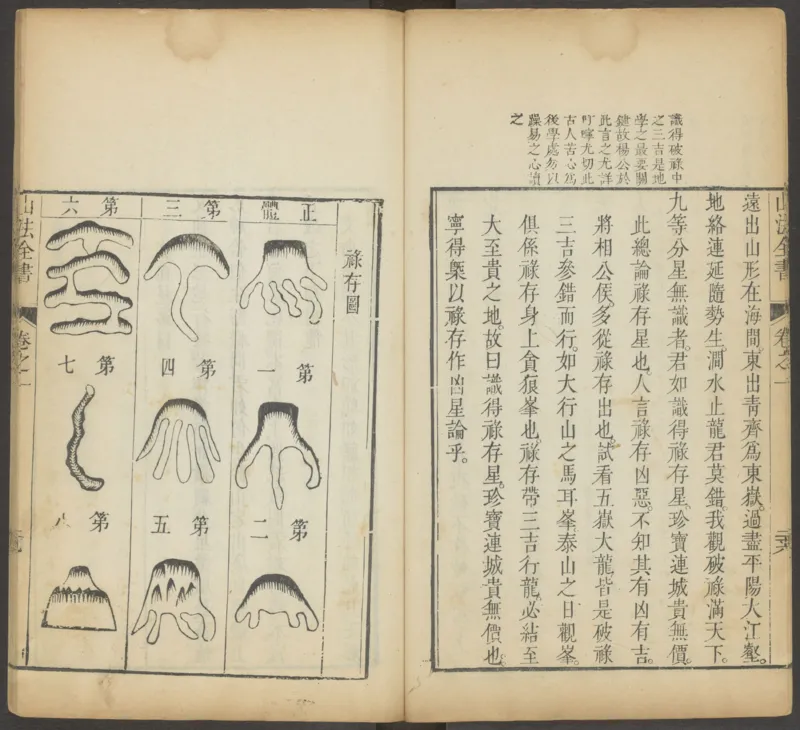 山法全書
卷之一
識得破祿中
之三吉是地
學之最要關
鍵故楊公於
此言之尤詳
叮嚀尤切此
古人苦心為
後學處勿以
躁易之心讀
之
遠出山形在海間。東出青齊為東嶽。過盡平陽大江壑。
地絡連延隨勢生。澗水止龍君莫錯。我觀破祿滿天下。
九等分星無識者。君如識得祿存星。珍寶連城貴無價。
此總論祿存星也。人言祿存凶惡。不知其有凶有吉。
將相公侯。多從祿存出也。試看五嶽大龍皆是破祿
三吉參錯而行。如大行山之馬耳峯。泰山之日觀峯。
俱係祿存身上貪狼峯也。祿存帶三吉行龍。必結至
大至貴之地。故曰識得祿存星。珍寶連城貴無價也。
寧得槩以祿存作凶星論乎。
祿存圖
正體
第一
第二
第三
第四
第五
第六
第七
第八
山法全書
卷之一